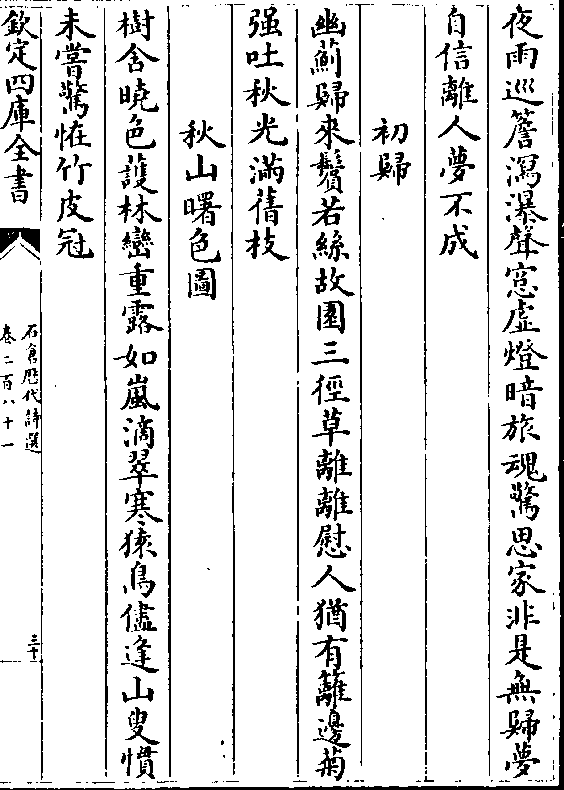 夜雨巡簷瀉瀑聲窓虛燈暗旅魂驚思家非是無歸夢
自信離人夢不成
初歸
幽薊歸來鬢若絲故園三徑草離離慰人猶有籬邊菊
强吐秋光滿舊枝
秋山曙色圖
樹舍曉色護林巒重露如嵐滴翠寒猿鳥儘逢山叟慣
未嘗驚怪竹皮冠
欽定四庫全書
石倉歷代詩選
卷二百八十一
三十